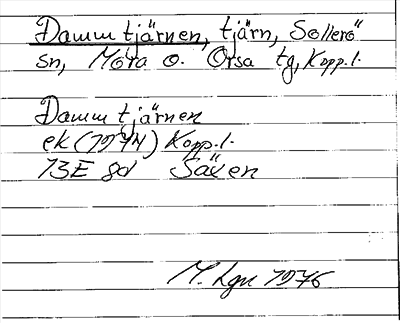 Dammtjärnen, tjärn, Sollerö
sn, Mora o. Orsa tg, Kopp.l.
Dammtjärnen
ek (1974) Kopp.l.
13E 8d Säxen
M. Lgn 1976